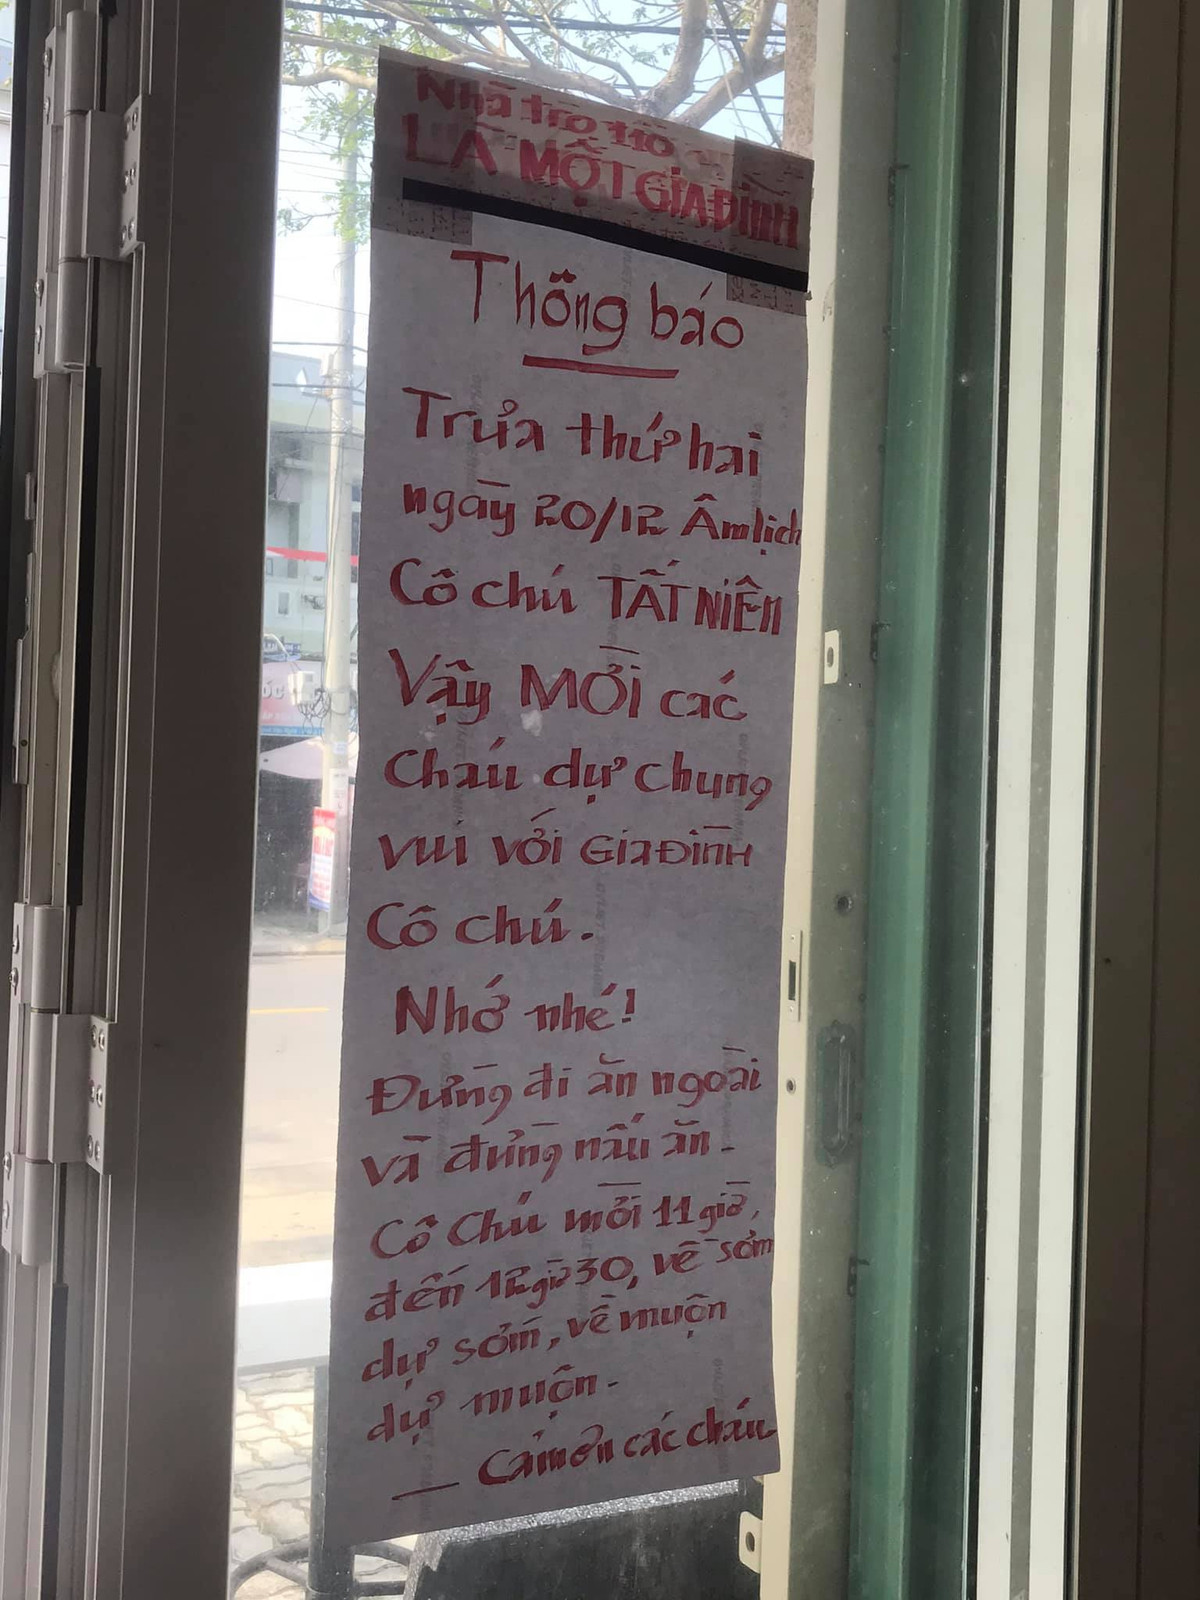 Nhà trọ 110
LÀ MỘT GIA ĐÌNH
Thông báo
Trưa thứ hai
ngày 20/12 Âm lịch
Cô chú TẤT NIÊN
Vậy MỜI các
Cháu dự chung
vui với Gia ĐÌNH
Cô chú.
Nhớ nhé!
Đừng đi ăn ngoài
và đừng nấu ăn.
Cô Chú mời 11 giờ,
đến 12 giờ 30, về sớm
dự sớm, về muộn
dự muộn.
Cảm ơn các cháu